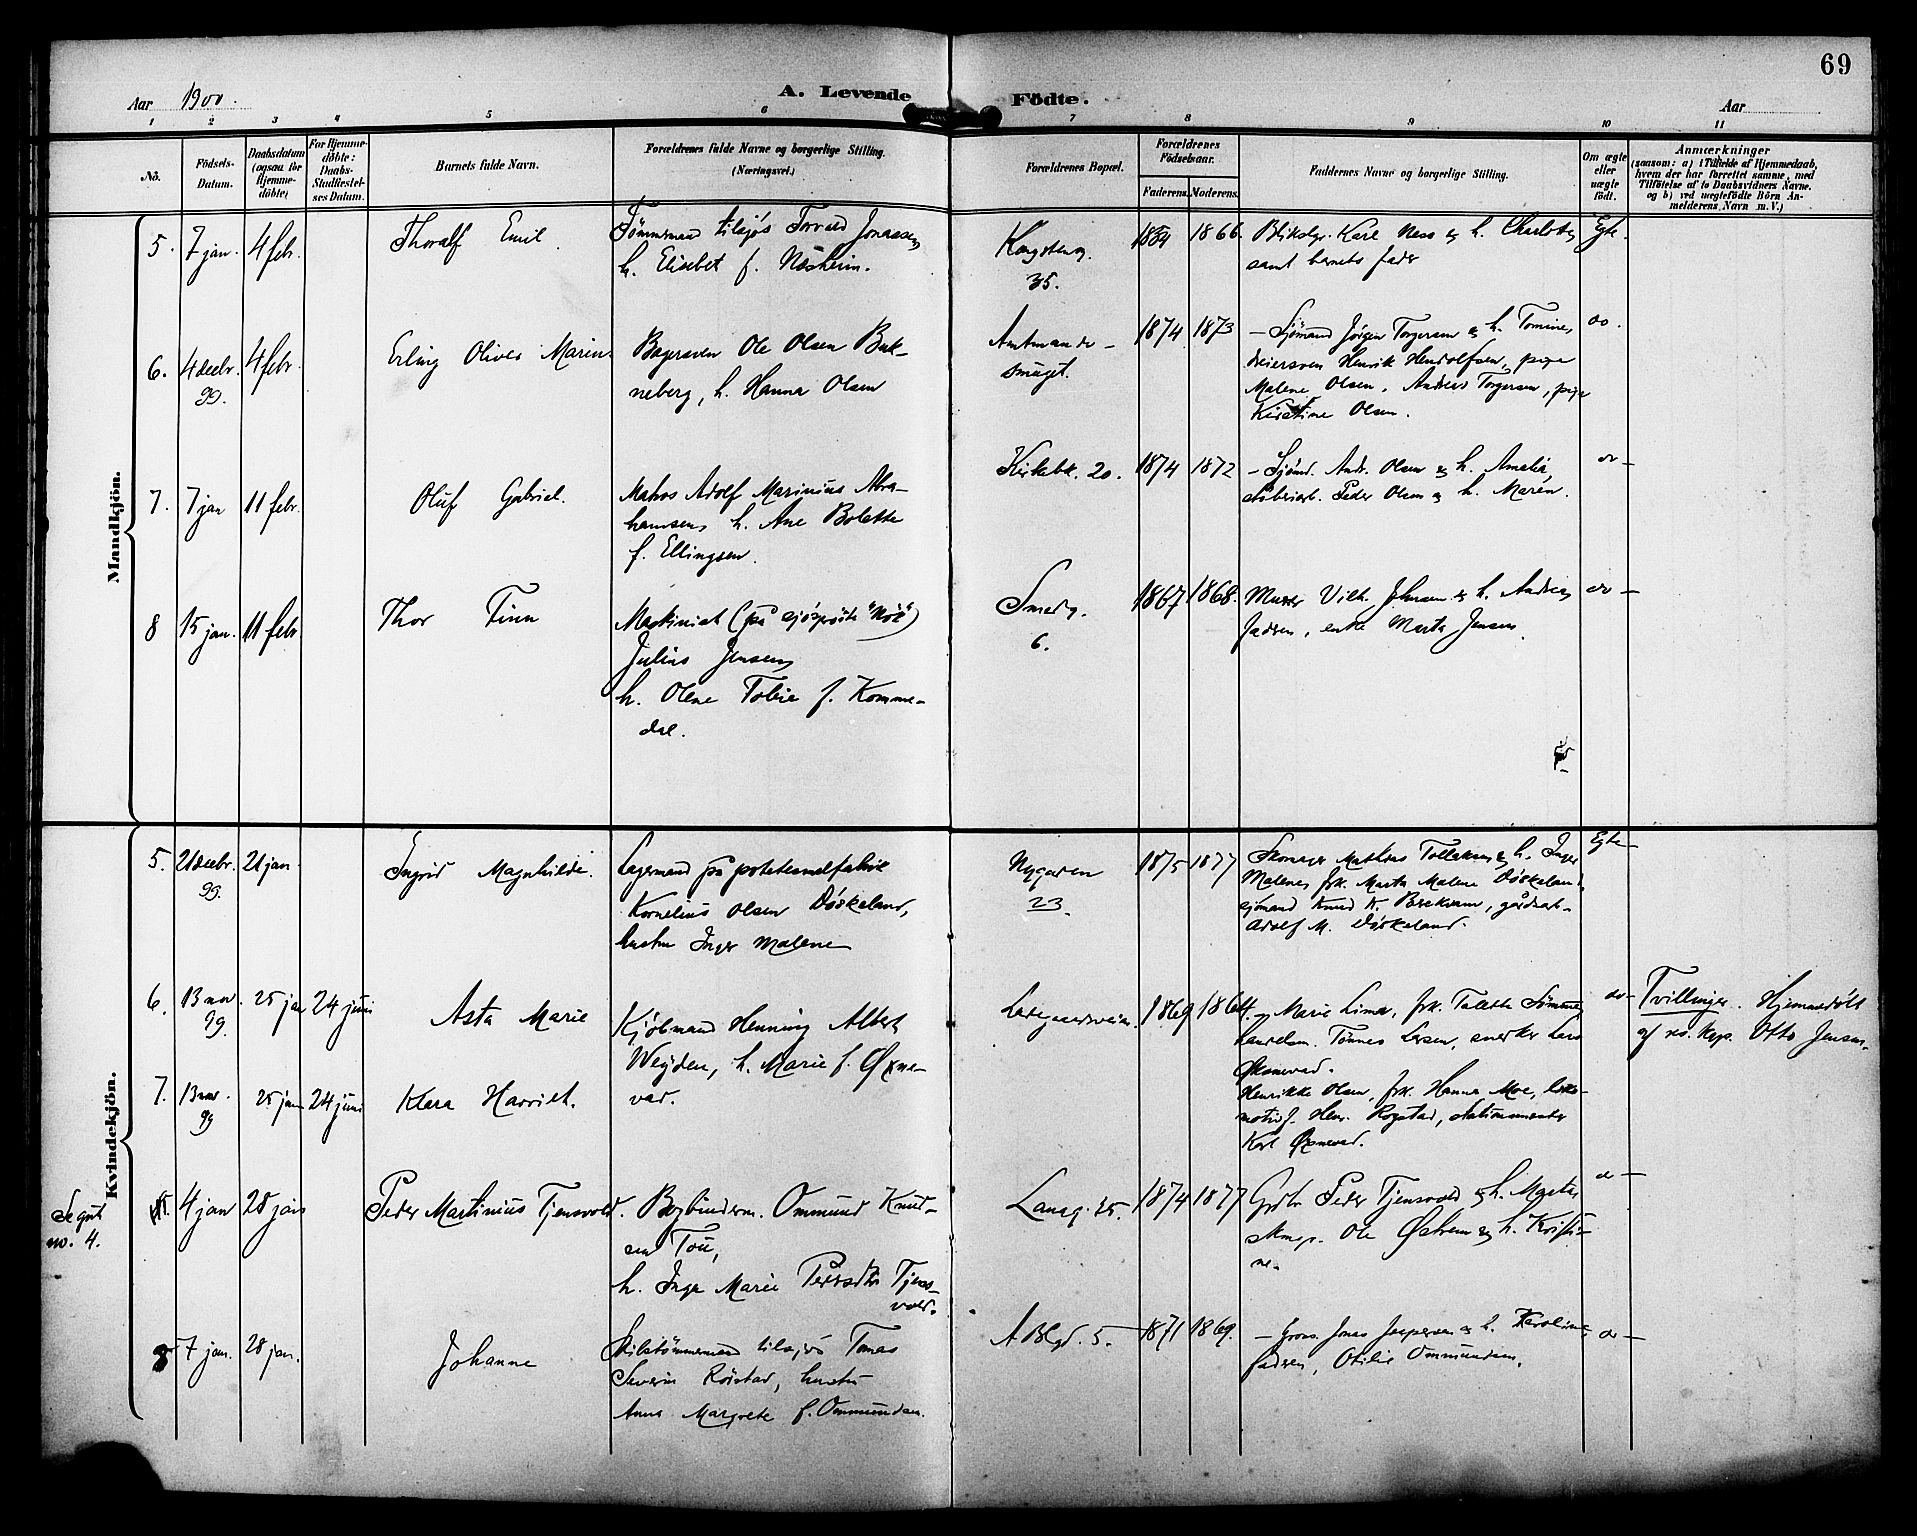 69
Aar 1900.
A. Levende Födte.
Aar
1 2 3 4 5 6 7 8 9 10 11
No.
Födsels-Datum.
Daabsdatum (ogsaa for Hjemme-döbte)
For Hjemme-döbte: Daabs-Stadfæstel-ses Datum.
Barnets fulde Navn.
Forældrenes fulde Navne og borgerlige Stilling.
(Næringsvei.)
Forældrenes Bopæl.
Forældrenes Födselsaar.
Faderens. Moderens.
Faddernes Navne og borgerlige Stilling.
Om ægte eller uægte födt.
Anmærkninger
(saasom: a) i Tilfælde af Hjemmedaab,
hvem der har forrettet samme, med
Tilföielse af to Daabsvidners Navne.
og b) ved uægtefödte Börn An-
melderens Navn m. V.)
Mandkjön.
5. 7 jan. 4 febr. Thoralf Emil.
Tømmermand tilsjøs Torvald Jonassen,
h. Elisabet f. Nesheim.
Kongsteng.
35.
1866.
Blikslgr. Karl Ness og h. Charlotte,
samt barnets fader
Egte.
6. 4 decbr. 99. 4 febr. Erling Oliver Marin
Bagersven Ole Olsen Buk-
neberg, h. Hanna Olsen
Amtmands-
smuget.
1874 1873
– Sjömand Jørgen Torgersen og h. Tomine,
dreiersven Henrik Hendolfsen, pige
Malene Olsen, Andreas Torgersen, pige
Kirstine Olsen.
do.
7. 7 jan 11 febr. Oluf Gabriel.
Matros Adolf Marinius Abra-
hamsen, h. Ane Bolette
f. Ellingsen.
Kirkebk. 20.
1874 1872
– Sjömd. Andr. Olsen og h. Amalia,
Peder Olsen og h. Maren.
do –
8 15 jan. 11 febr. Thor Finn
Maskinist (på "Nök")
Julius Jensen,
h. Olene Tobie f. Komme-
dal.
Smedg.
6.
1867 1868.
Murer Vilh. Johnsen og h. Andrea,
fadren, enke Marta Jensen.
do –
Kvindekjön.
5. 21 decbr. 99. 21 jan. Ingrid Magnhilde.
Lagermand på potetesmelfabrik
Kornelius Olsen Døskeland,
hustru Inger Malene
Nygaden
23.
1875 1877
Skomager Mathias Tollaksen og h. Inger
Malene, frk. Marta Malene Døskeland,
sjömand Knud K. Brekvam, gårdsarb.
Adolf M. Døskeland.
Egte –
6. 13 nov. 99. 25 jan 24 juni Asta Marie
Kjøbmand Henning Albert
Weyden, h. Marie f. Øxne-
vad.
Ladegaardsveien.
1869 1864.
– Marie Lima, frk. Talette Sömme,
Tønnes Larsen, snerker Lars
Øksnevad.
do –
Tvillinger. Hjemmedøbt
af res. kap. Otto Jensen.
7. 13 nov. 99 25 jan 24 juni Klara Harriet.
Henrikke Olsen, frk. Hanna Moe, loko-
motivf. Henr. Rogstad, stationsmester
Karl Øxnevad.
Se gut
no. 4.
4 jan 28 jan Peder Martinius Tjensvold.
Bogbinderm. Ommund Knud-
sen Tou,
h. Inga Marie Pedersdtr. Tjens-
vold.
Langg. 25.
1874 1877
Grdbr. Peder Tjensvold og h. Marta,
Ole Østrem og h. Kristi-
ne.
do –
8 7 jan. 28 jan. Johanne
Seilstømmermand tilsjøs Tomas
Severin Røistad, hustru
Anna Margrete f. Ommundsen.
A Blgd. 5.
1871 1869.
– Jonas Jespersen og h. Karoline,
fadren, Otilie Ommundsen.
do –